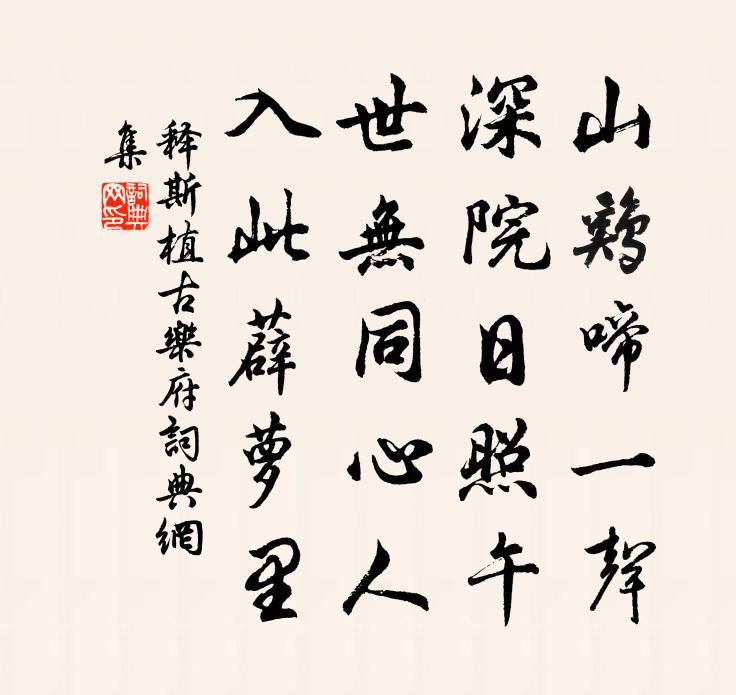 山鷄啼一聲
深院日照午
世無同心人
入此薜萝里
释斯植古樂府詞典網
集
詞典網印